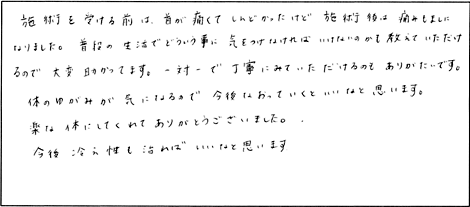 施術を受ける前は、首が痛くてしんどかったけど 施術後は 痛みもましに
なりました。普段の生活でどういう事に気をつけなければいけないのかも教えていただけ
るので大変助かってます。一対一で丁寧にみていただけるのもありがたいです。
体のゆがみが気になるので今後なおっていくといいなと思います。
楽な体にしてくれてありがとうございました。
今後 冷え性も治ればいいなと思います